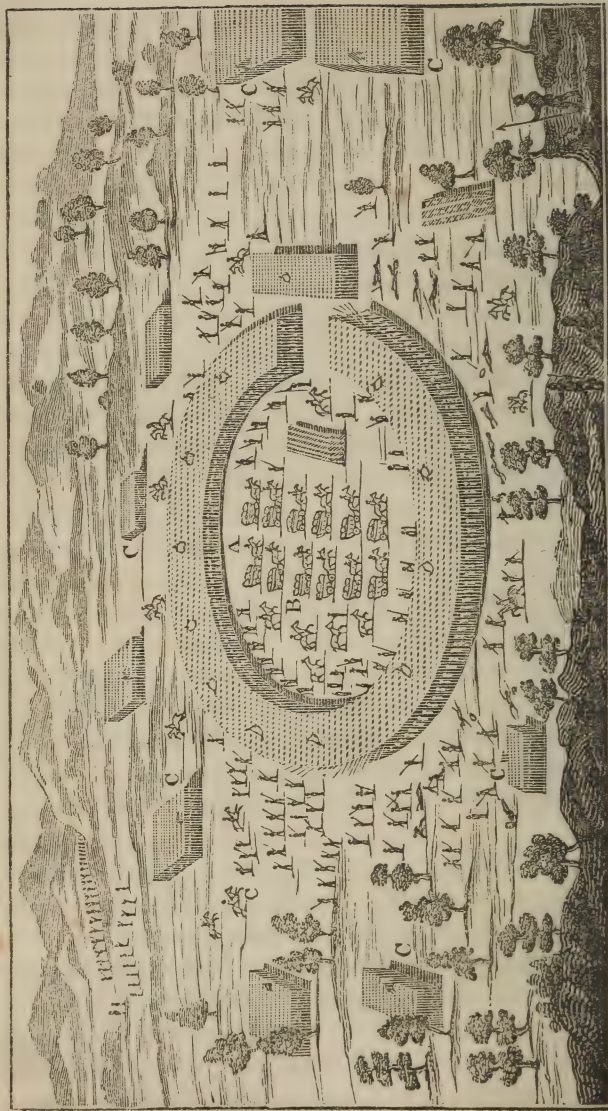 C
C
A
C C
B
C
C
C